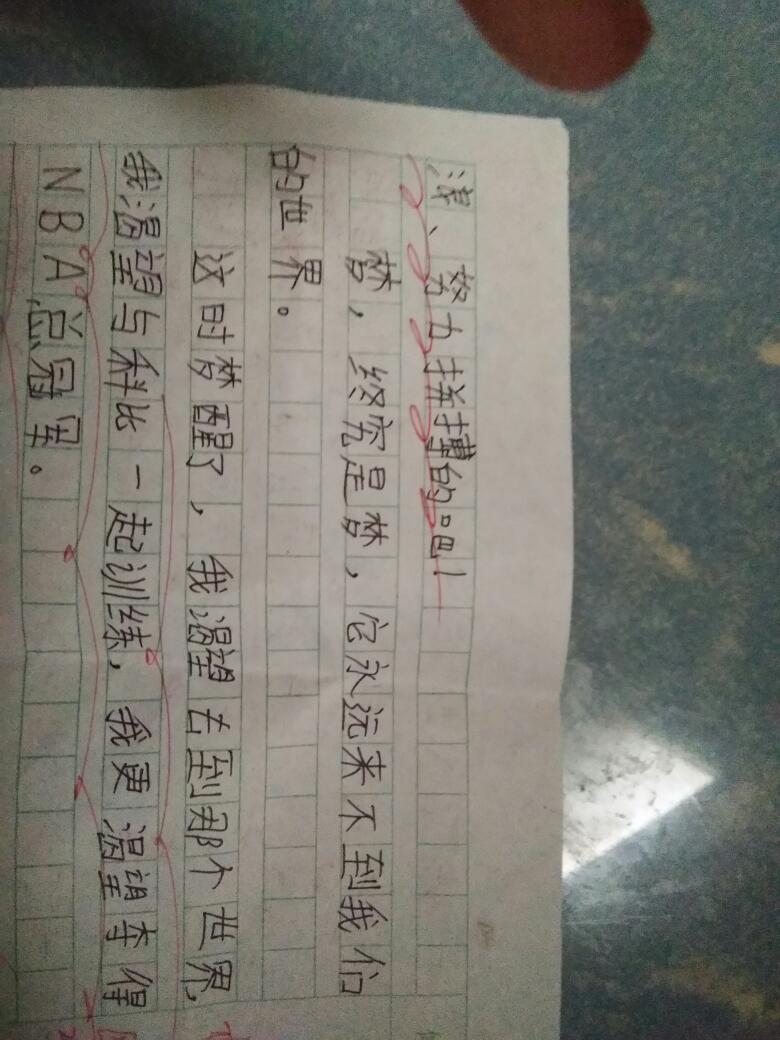 、努力拼搏的吧！
梦，终究是梦，它永远来不到我们
的世界。
这时梦醒了，我渴望去到那个世界，
我渴望与科比一起训练，我更渴望夺得
NBA总冠军。